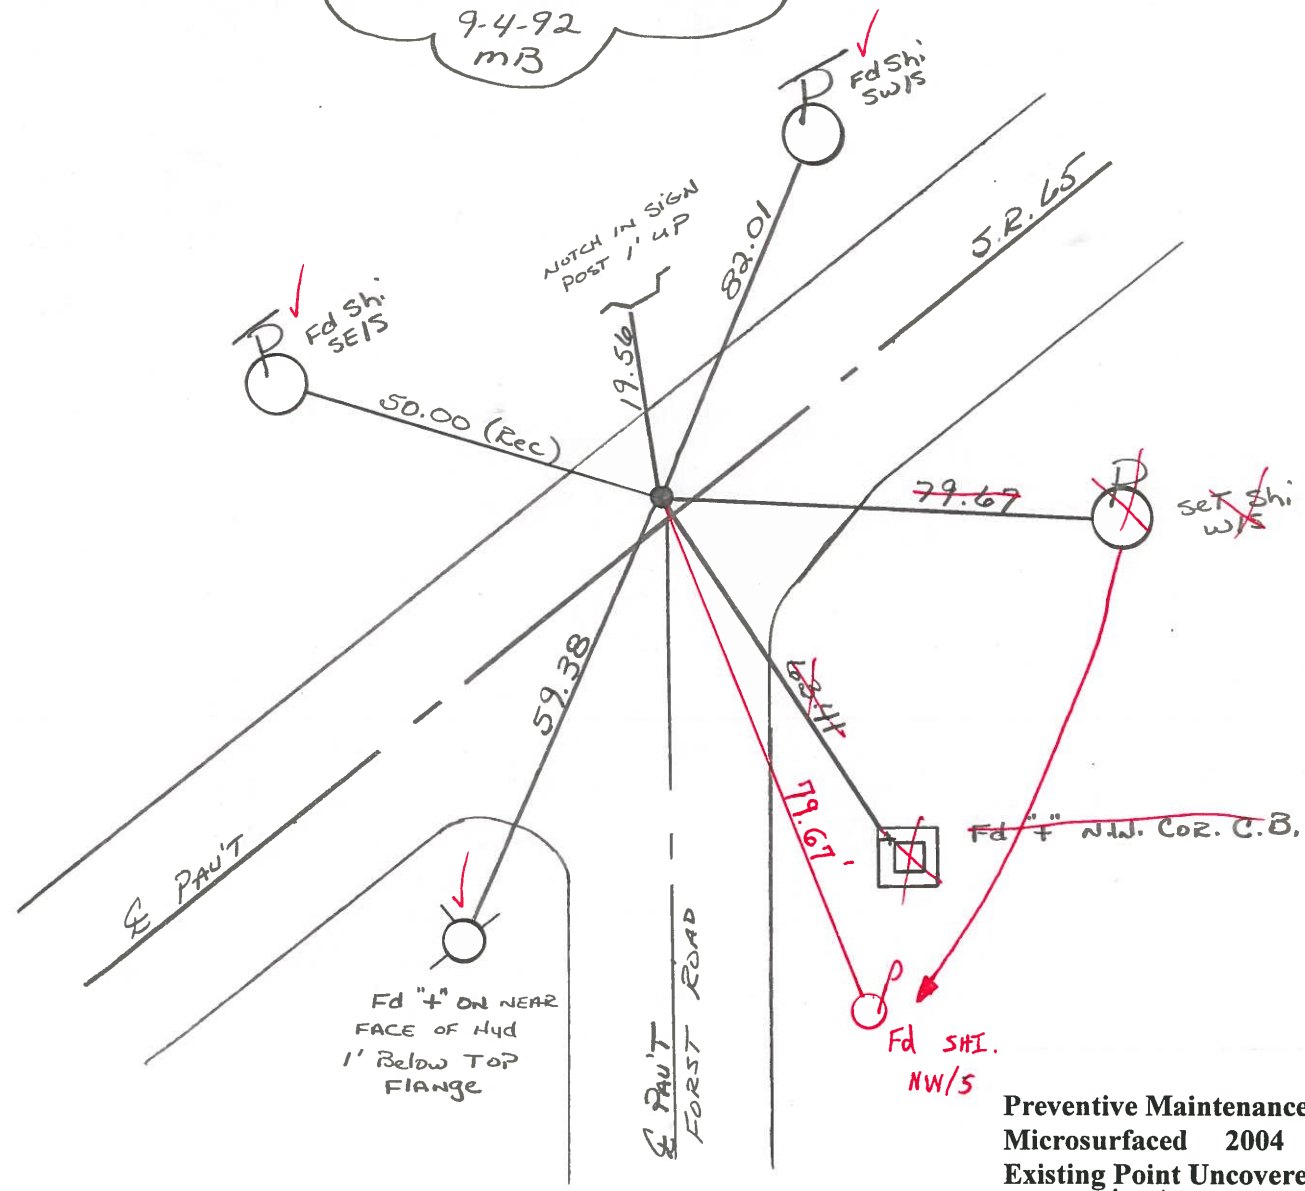 9-4-92
mB
P
Fd Shi
SW/S
S.R. 65
NOTCH IN SIGN
POST 1' UP
82.01
P
Fd Shi
SE/S
19.56
50.00 (Rec)
79.67
P
SeT Shi
W/S
59.38
63.41
79.67'
Fd "+" N.W. COR. C.B.
℄ PAV'T
Fd "+" ON NEAR
FACE OF Hyd
1' Below TOP
FlANge
℄ PAV'T
FORST ROAD
P
Fd SHI.
NW/S
Preventive Maintenance
Microsurfaced 2004
Existing Point Uncovere